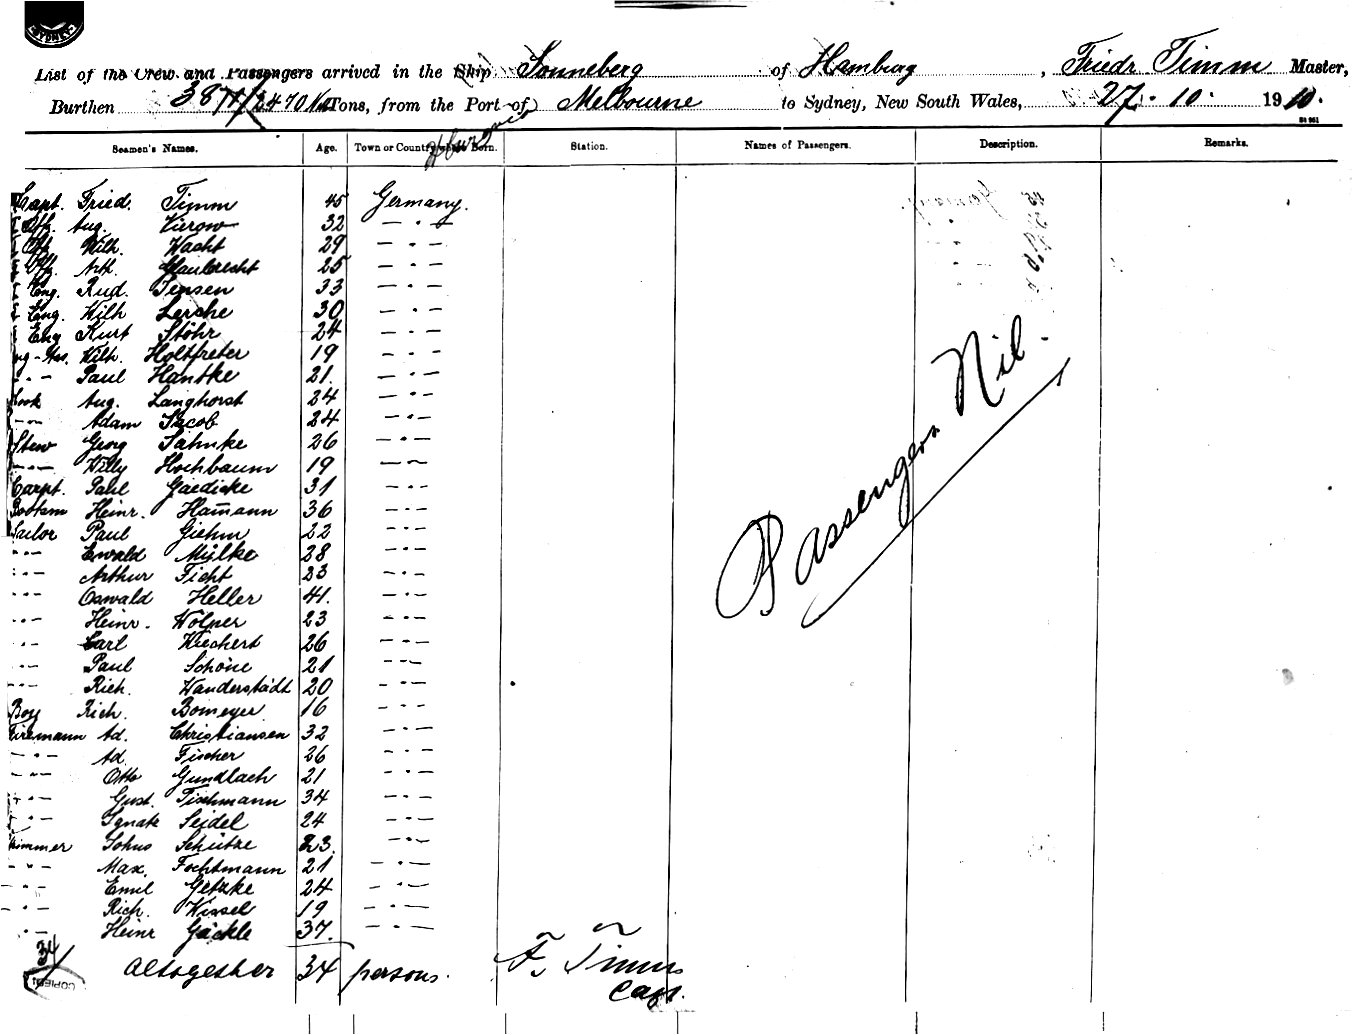 SYDNEY
List of the Crew and Passengers arrived in the Ship Sonneberg of Hamburg, Friedr Timm Master,
Burthen Tons, from the Port of Melbourne to Sydney, New South Wales, 27. 10. 1910.
Seamen's Names. Age. Town or Country where Born. Station. Names of Passengers. Description. Remarks.
Capt. Fried. Timm 45 Germany.
Off. Aug. Vierow 32 — " —
Off. Wilh. Wacht 29 — " —
Off. Arth. Glaubrecht 25 — " —
Eng. Rud. Jensen 33 — " —
Eng. Wilh Lerche 30 — " —
Eng Kurt Stöhr 24 — " —
Wilh. Holtfreter 19 — " —
— " — Paul Hantke 21. — " —
Cook Aug. Langhorst 24 — " —
— " — Adam Jacob 24 — " —
Stew Georg Jahnke 26 — " —
— " — Willy Hochbaum 19 — " —
Carpt. Paul Gaedicke 31 — " —
Heinr. Hamann 36 — " —
Sailor Paul Giehm 22 — " —
— " — Ewald Mülke 28 — " —
— " — Arthur Ficht 23 — " —
— " — Oswald Heller 41. — " —
— " — Heinr. Wölper 23 — " —
— " — Carl Wiechert 26 — " —
— " — Paul Schöne 21 — " —
— " — Rich. Wanderstädt 20 — " —
Boy Rich. Bomeyer 16 — " —
Firemann Ad. Christiansen 32 — " —
— " — Ad. Fischer 26 — " —
— " — Otto Gundlach 21 — " —
— " — Gust. Tischmann 34 — " —
— " — Ignatz Seidel 24 — " —
Trimmer Johns Schütze 23. — " —
— " — Max. Fochtmann 21 — " —
— " — Emil Getzke 24 — " —
— " — Rich. Wissel 19 — " —
— " — Heinr Gäckle 37. — " —
Passengers Nil.
34
altogether 34 persons.
F. Timm
Capt.
COPIED